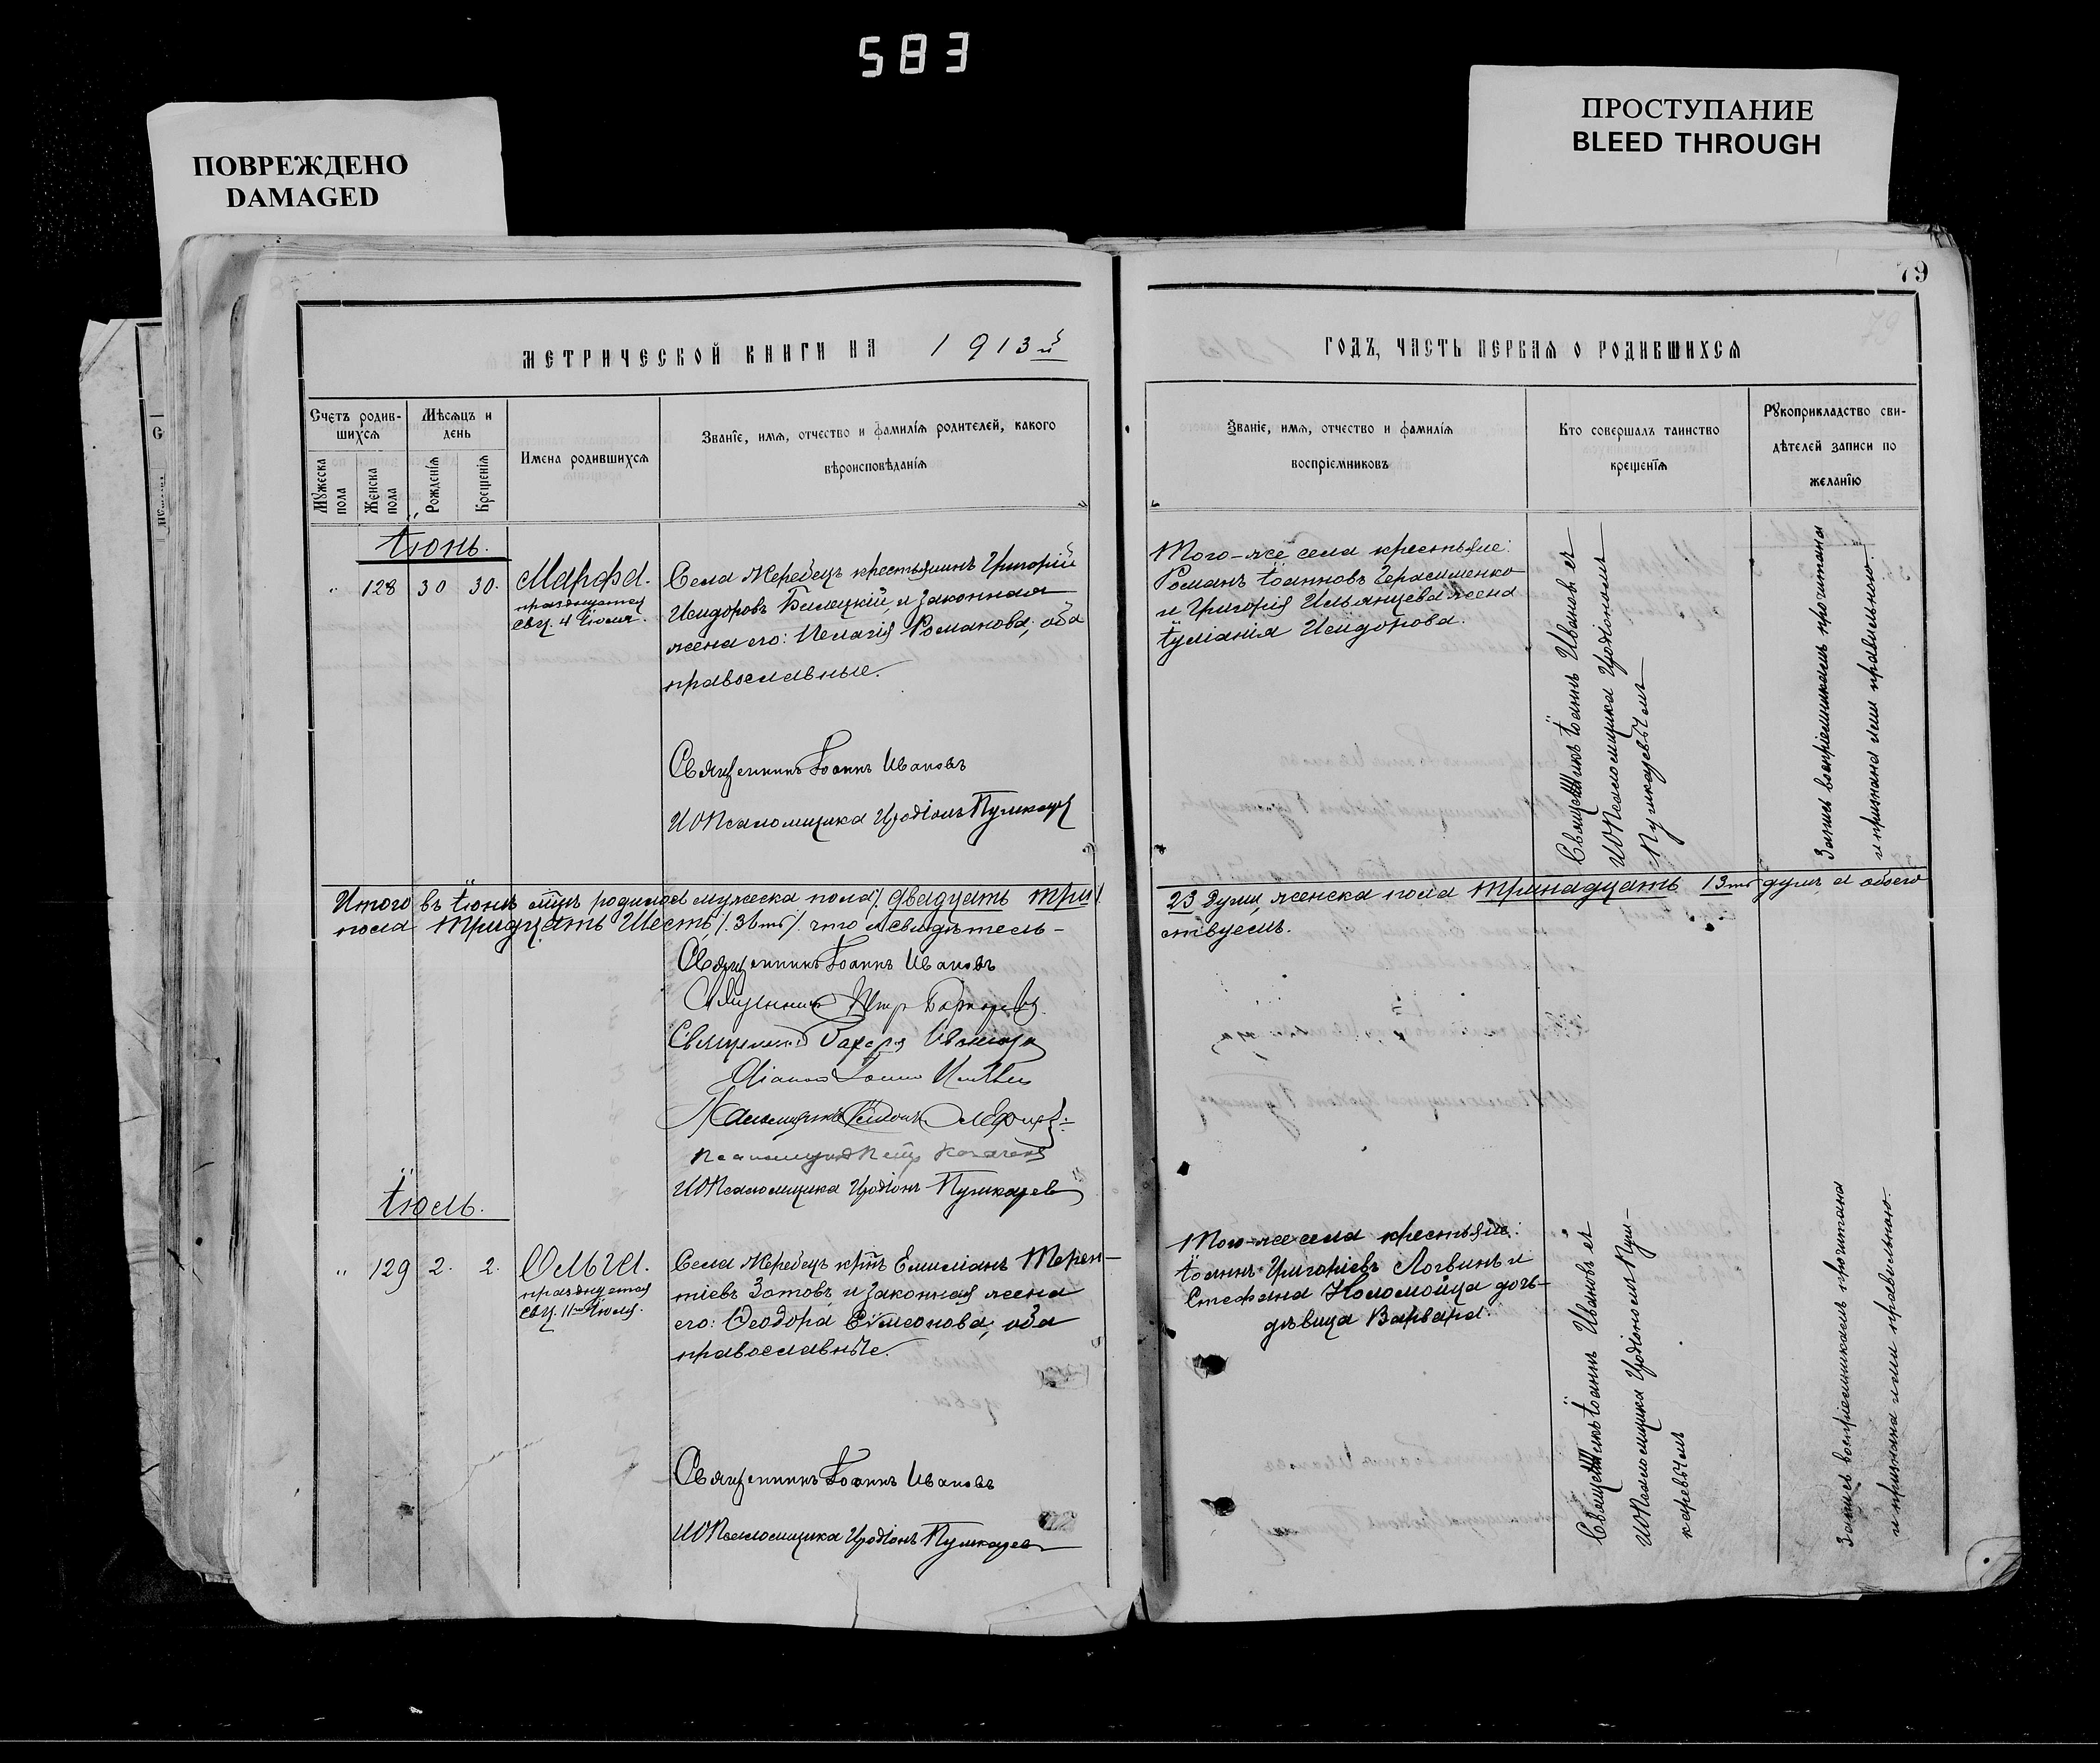 583
ПОВРЕЖДЕНО
DAMAGED
ПРОСТУПАНИЕ
BLEED THROUGH
МЕТРИЧЕСКОЙ КНИГИ НА 1913й
Счетъ родив-
шихся
Мѣсяцъ и
день
Мужеска
пола
Женска
пола
Рожденія
Крещенія
Имена родившихся
Званіе, имя, отчество и фамилія родителей, какого
вѣроисповѣданія
Іюнь.
" 128 30 30.
Марѳа.
празднуется
4 Іюля.
Села Жеребецъ крестьянинъ Григорій
Исидоровъ Билецкій, и законная
жена его: Пелагія Романова; оба
православные.
Священникъ Іоаннъ Ивановъ
ИОПсаломщика Иродіонъ Пушкарев
Итого въ Іюнѣ мцѣ родилось мужеска пола /. двадцать три /.
пола тридцать шесть, /. 36ть /. что и свидѣтель-
Священникъ Іоаннъ Ивановъ
Священникъ Петр
Священникъ Захарія Иваницкій
Діаконъ Іоаннъ
Псаломщикъ
Псаломщикъ Петр
ИОПсаломщика Иродіонъ Пушкарев
Іюль.
" 129 2. 2.
Ольга.
празднуется
11го Іюля.
Села Жеребецъ крнъ Емиліанъ Терен-
тіевъ Зотовъ, и законная жена
его: Ѳеодора Сѵмеонова; оба
православные.
Священникъ Іоаннъ Ивановъ
ИОПсаломщика Иродіонъ Пушкарев
79
ГОДЪ, ЧАСТЬ ПЕРВАЯ О РОДИВШИХСЯ
Званіе, имя, отчество и фамилія
воспріемниковъ
Кто совершалъ таинство
крещенія
Рукоприкладство сви-
дѣтелей записи по
желанію
Того-же села крестьяне:
Романъ Іоанновъ Герасименко
и Григорія Ильянцева жена
Іуліанія Исидорова.
Священникъ Іоаннъ Ивановъ съ
ИОПсаломщика Иродіономъ
Пушкаревымъ
Запись воспріемникамъ прочитана
и признана ими правильною.
23 души, женска пола тринадцать 13ть душъ, а обоего
ствуемъ.
Того-же села крестьяне:
Іоаннъ Григоріевъ Логвинъ и
Стефана Коломойца дочь-
дѣвица Варвара.
Священникъ Іоаннъ Ивановъ съ
ИОПсаломщика Иродіономъ Пуш-
каревымъ
Запись воспріемникамъ прочитана
и признана ими правильною.